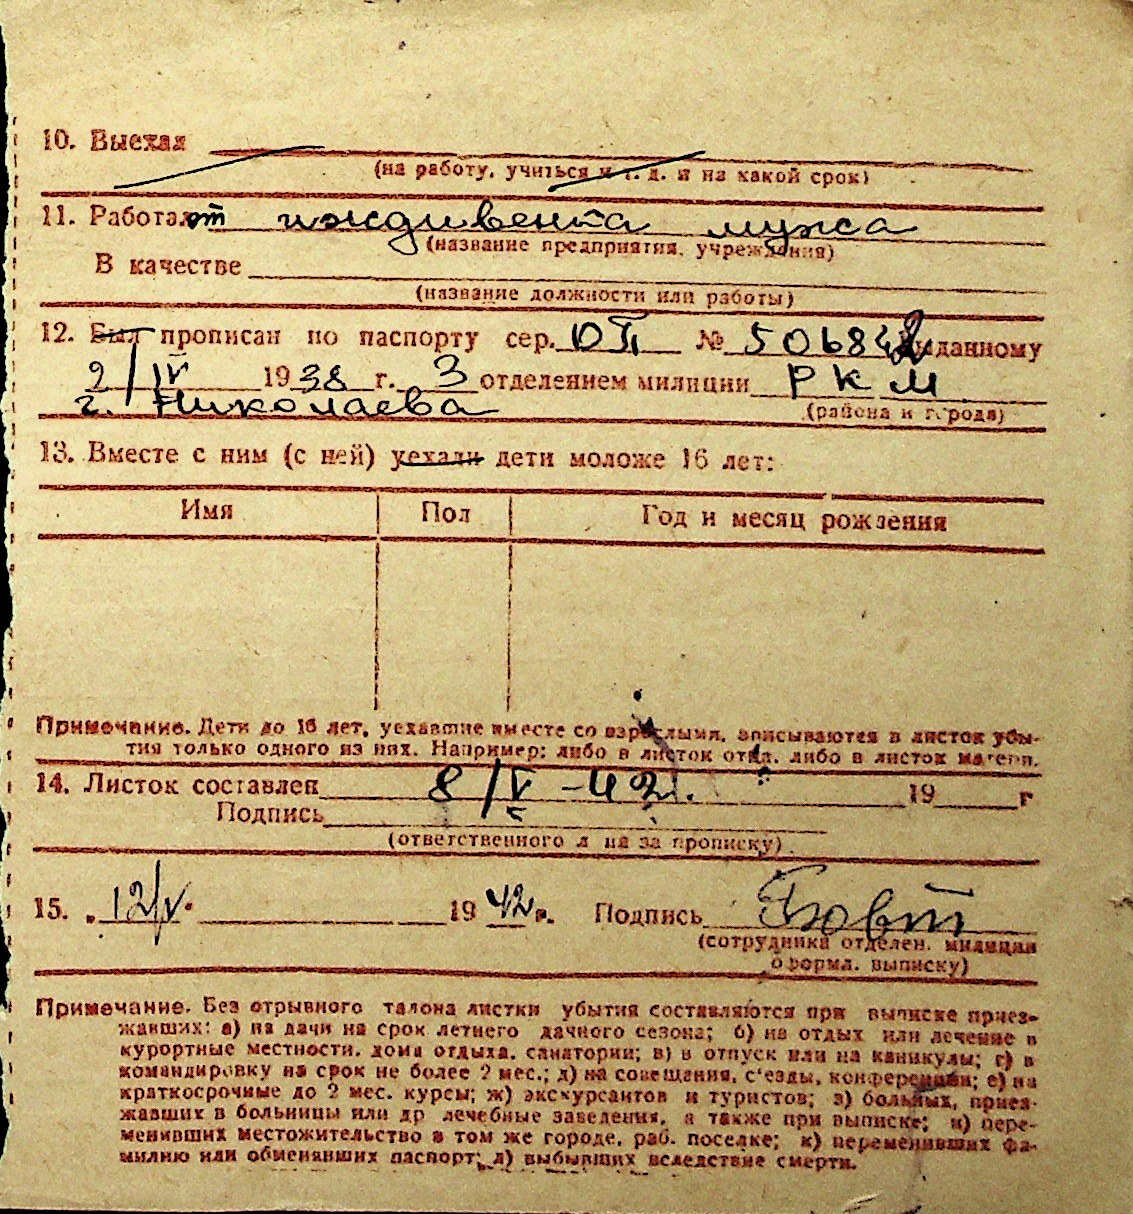 10. Выехал
(на работу, учиться и т. д. и на какой срок)
11. Работает иждивента мужа
(название предприятия, учреждения)
В качестве
(название должности или работы)
12. Был прописан по паспорту сер. ОП № 506842 выданному
2/IV 1938 г. 3 отделением милиции РКМ
г. Николаева (района и города)
13. Вместе с ним (с ней) уехали дети моложе 16 лет:
Имя Пол Год и месяц рождения
Примечание. Дети до 16 лет, уехавшие вместе со взрослыми, вписываются в листок убы-
тия только одного из них. Например: либо в листок отца, либо в листок матери.
14. Листок составлен 8/V-42г. 19 г
Подпись
(ответственного л на за прописку)
15. „12/V. 1942г. Подпись
(сотрудника отделен. милиции
оформл. выписку)
Примечание. Без отрывного талона листки убытия составляются при выписке приез-
жавших: а) на дачи на срок летнего дачного сезона; б) на отдых или лечение в
курортные местности, дома отдыха, санатории; в) в отпуск или на каникулы; г) в
командировку на срок не более 2 мес.; д) на совещания, с'езды, конференции; е) на
краткосрочные до 2 мес. курсы; ж) экскурсантов и туристов; з) больных, приез-
жавших в больницы или др лечебные заведения, а также при выписке; и) пере-
менивших местожительство в том же городе, раб. поселке; к) переменивших фа-
милию или обменявших паспорт; л) выбывших вследствие смерти.